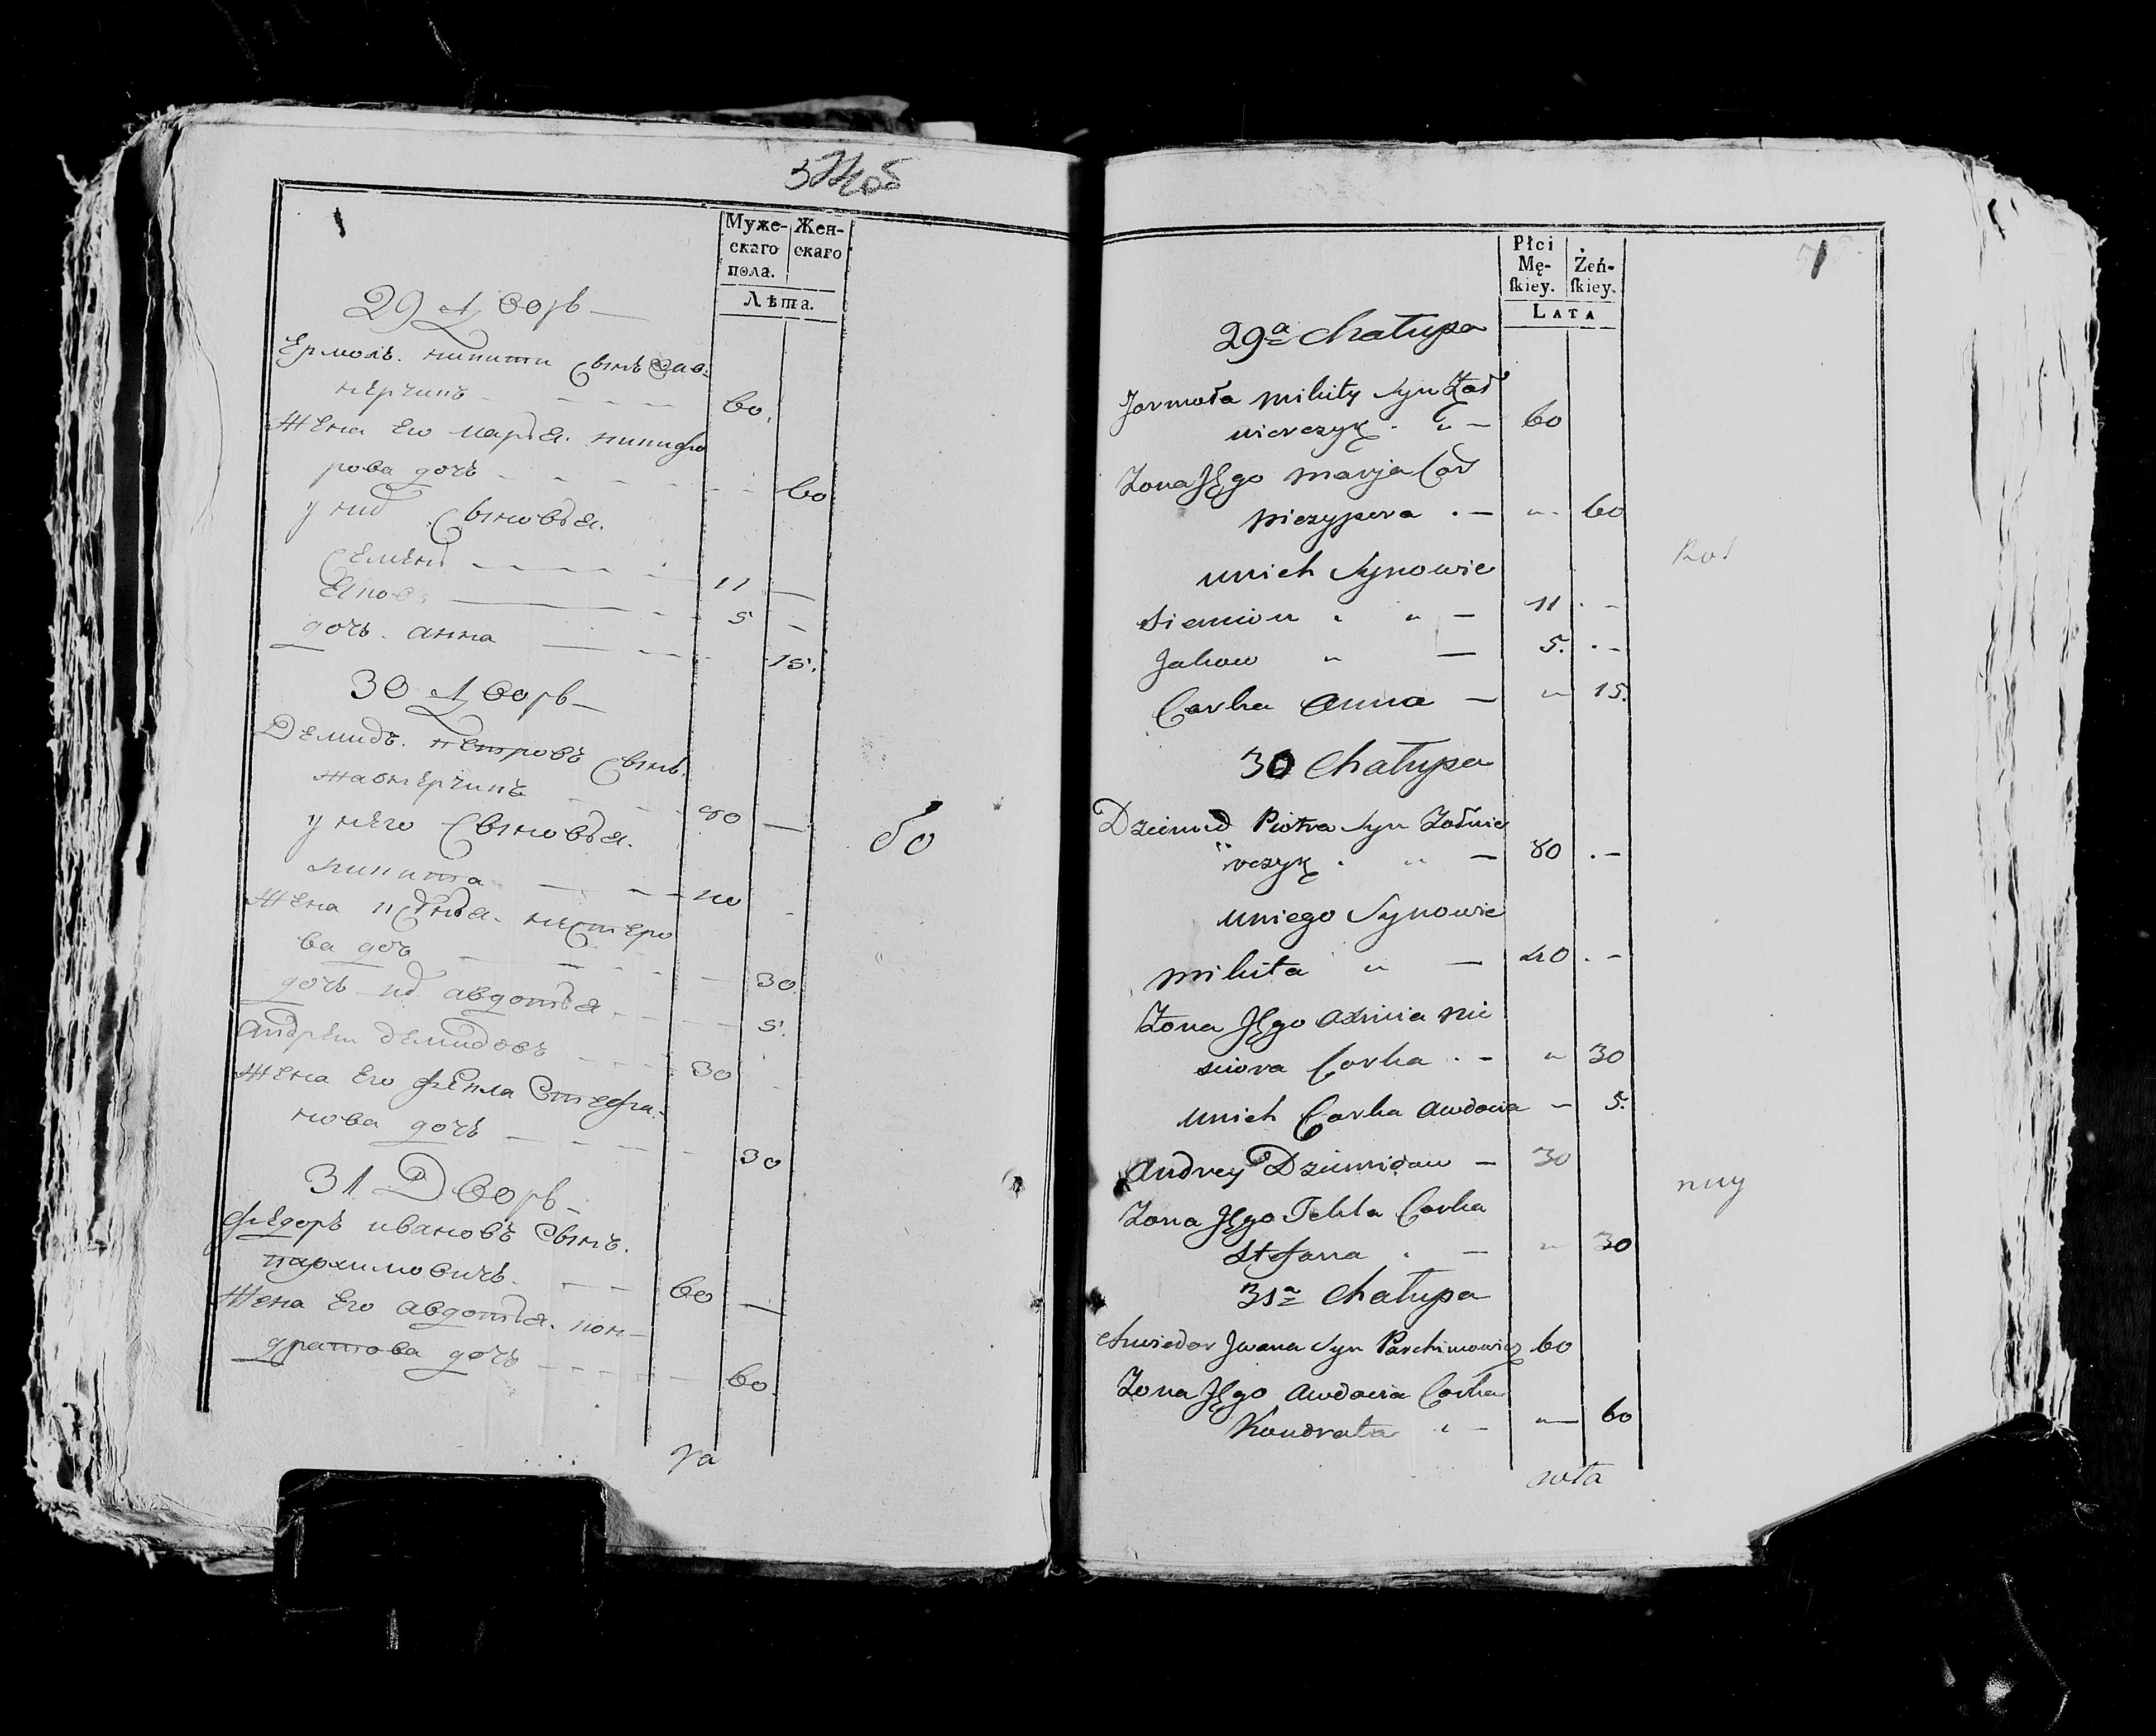 Муже-
скаго
пола.
Жен-
скаго
Лѣта.
29 Дворъ —
Ермолъ. никити Сынъ Жав:
нѣрчикъ — — — — 60.
Жена Его марья. никифо
рова дочь — — — — 60
у них Сыновья.
Семенъ — — — — 11 —
Яковъ — — — 5 —
дочь. анна — — — 15.
30 Дворъ —
Демидъ. петровъ Сынъ.
жавнѣрчикъ — — 80 —
у него Сыновья.
никита — — — 40 -
Жена ксенья. нестеро
ва доч — — — — 30.
дочь их авдотья — — — 5.
андрей демидовъ — — — 30 -
Жена Его фекла Стефа-
нова дочь — — — — 30
31 Дворъ —
фѣдоръ ивановъ Сынъ.
пархимовичъ. — — 60 —
Жена Его авдотья. кон-
дратова дочь — — — — 60.
60
Płci
Mę-
skiey.
Żeń-
skiey.
LATA
29a Chałupa
Jarmoła mikity Syn Żoł
nierczyk . „ — 60
Zona Jego marja Cor
niczypera . — „ 60
unich Synowie
Siemion „ „ — 11 . —
Jakow „ — 5. . —
Corka anna — „ 15.
30 Chałupa
Dziemid Piotra Syn Żołnie
rczyk . „ — 80 . —
uniego Synowie
mikita „ — 40 . —
Zona Jego axinia nie
sciora Corka . — „ 30
unich Corka awdocia — 5.
andrey Dziemidow — 30
Zona Jego Tekla Corka
Stefana . — „ 30
31a Chałupa
Chwiedor Jwana Syn Parchimowicz 60
Zona Jego awdocia Corka
Kondrata „ — „ — 60